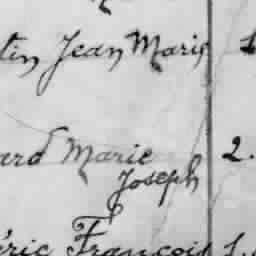 tin Jean Marie 1
ard Marie 2.
Joseph
éric François 1.